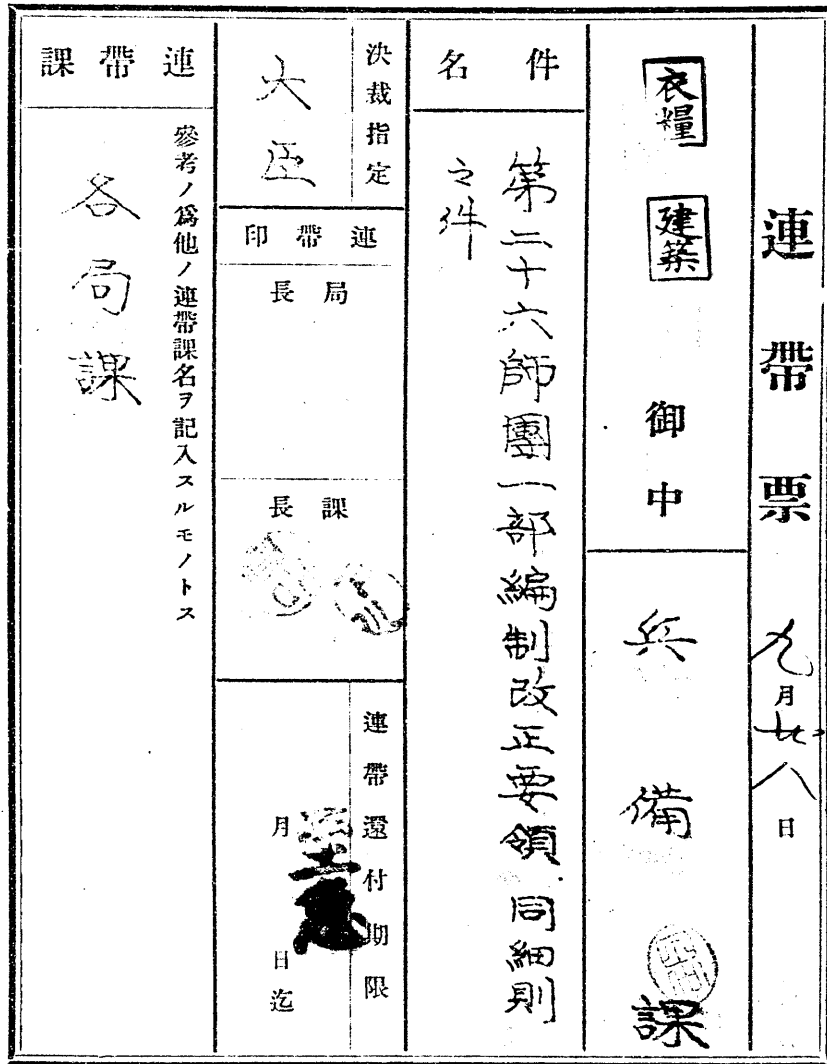 連帶票 九月廿八日
衣糧 建築 御中
兵備課
件名
第二十六師團一部編制改正要領 同細則
之件
決裁指定
大臣
連帶印
局長
課長
連帶還付期限
月 日迄
連帶課
參考ノ爲他ノ連帶課名ヲ記入スルモノトス
各局課